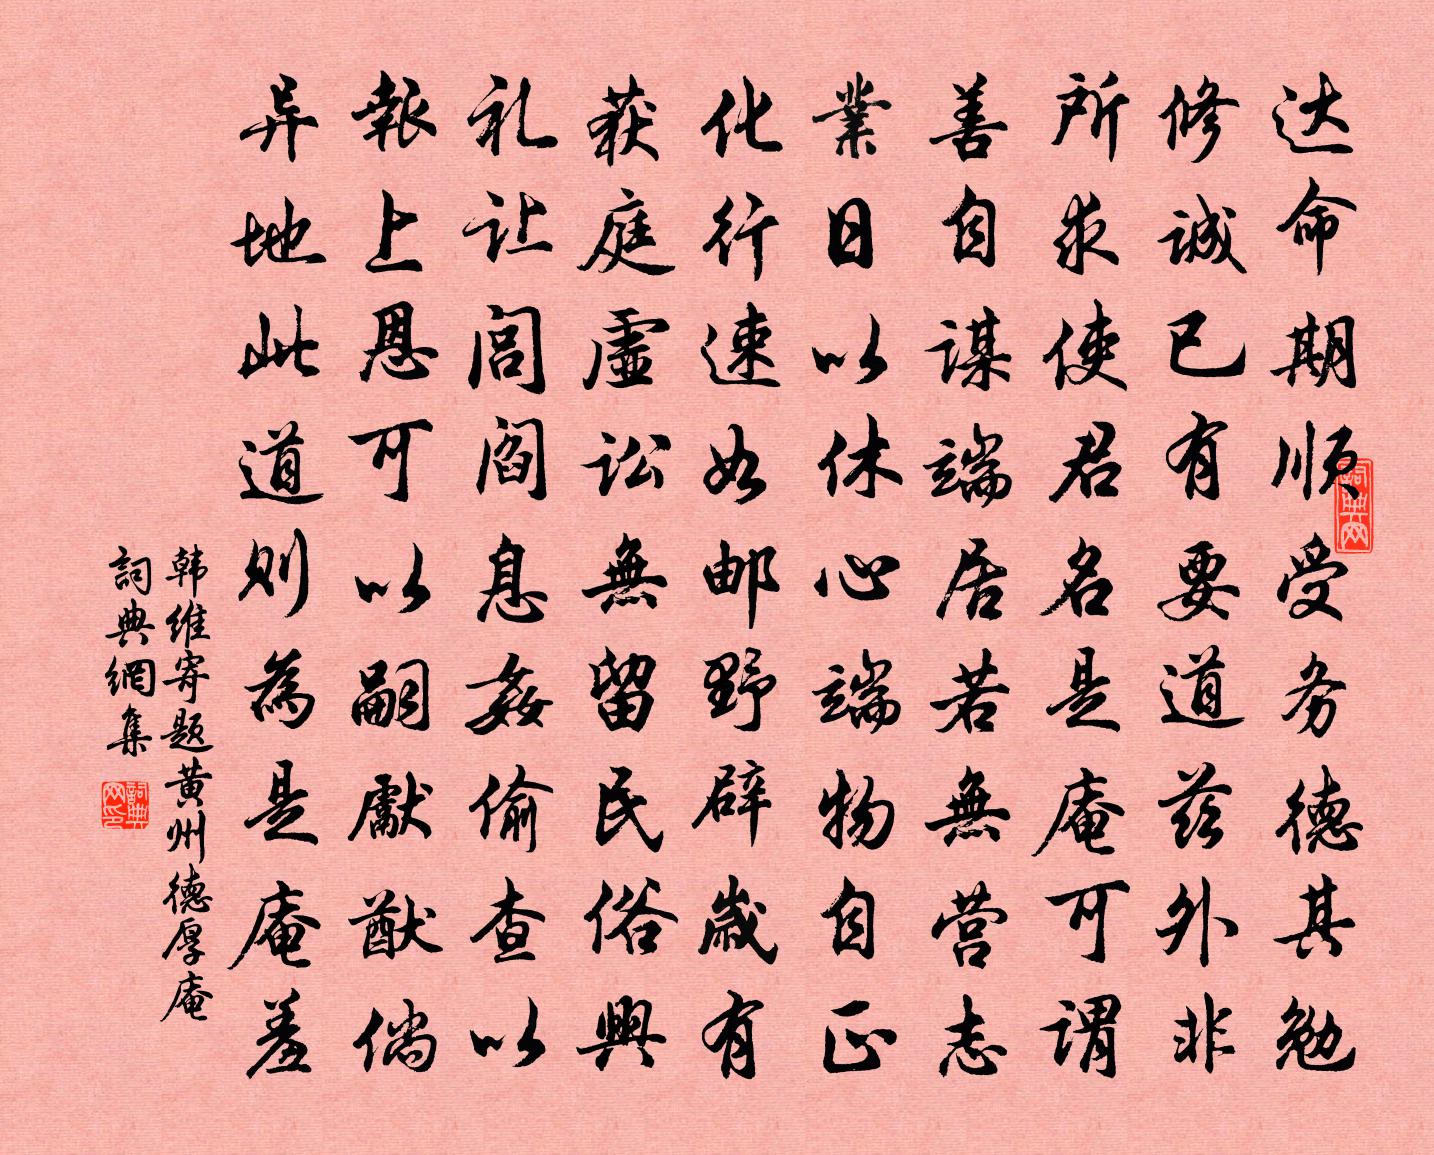 达命期顺受务德其勉
修诚已有要道兹外非
所求使君名是庵可谓
善自谋端居若無营志
業日以休心端物自正
化行速如邮野辟歲有
获庭虚讼無留民俗興
礼让闾阎息姦偷查以
報上恩可以嗣獻猷倘
异地此道则為是庵羞
韩维寄题黄州德厚庵
詞典網集
詞典网
詞典网印